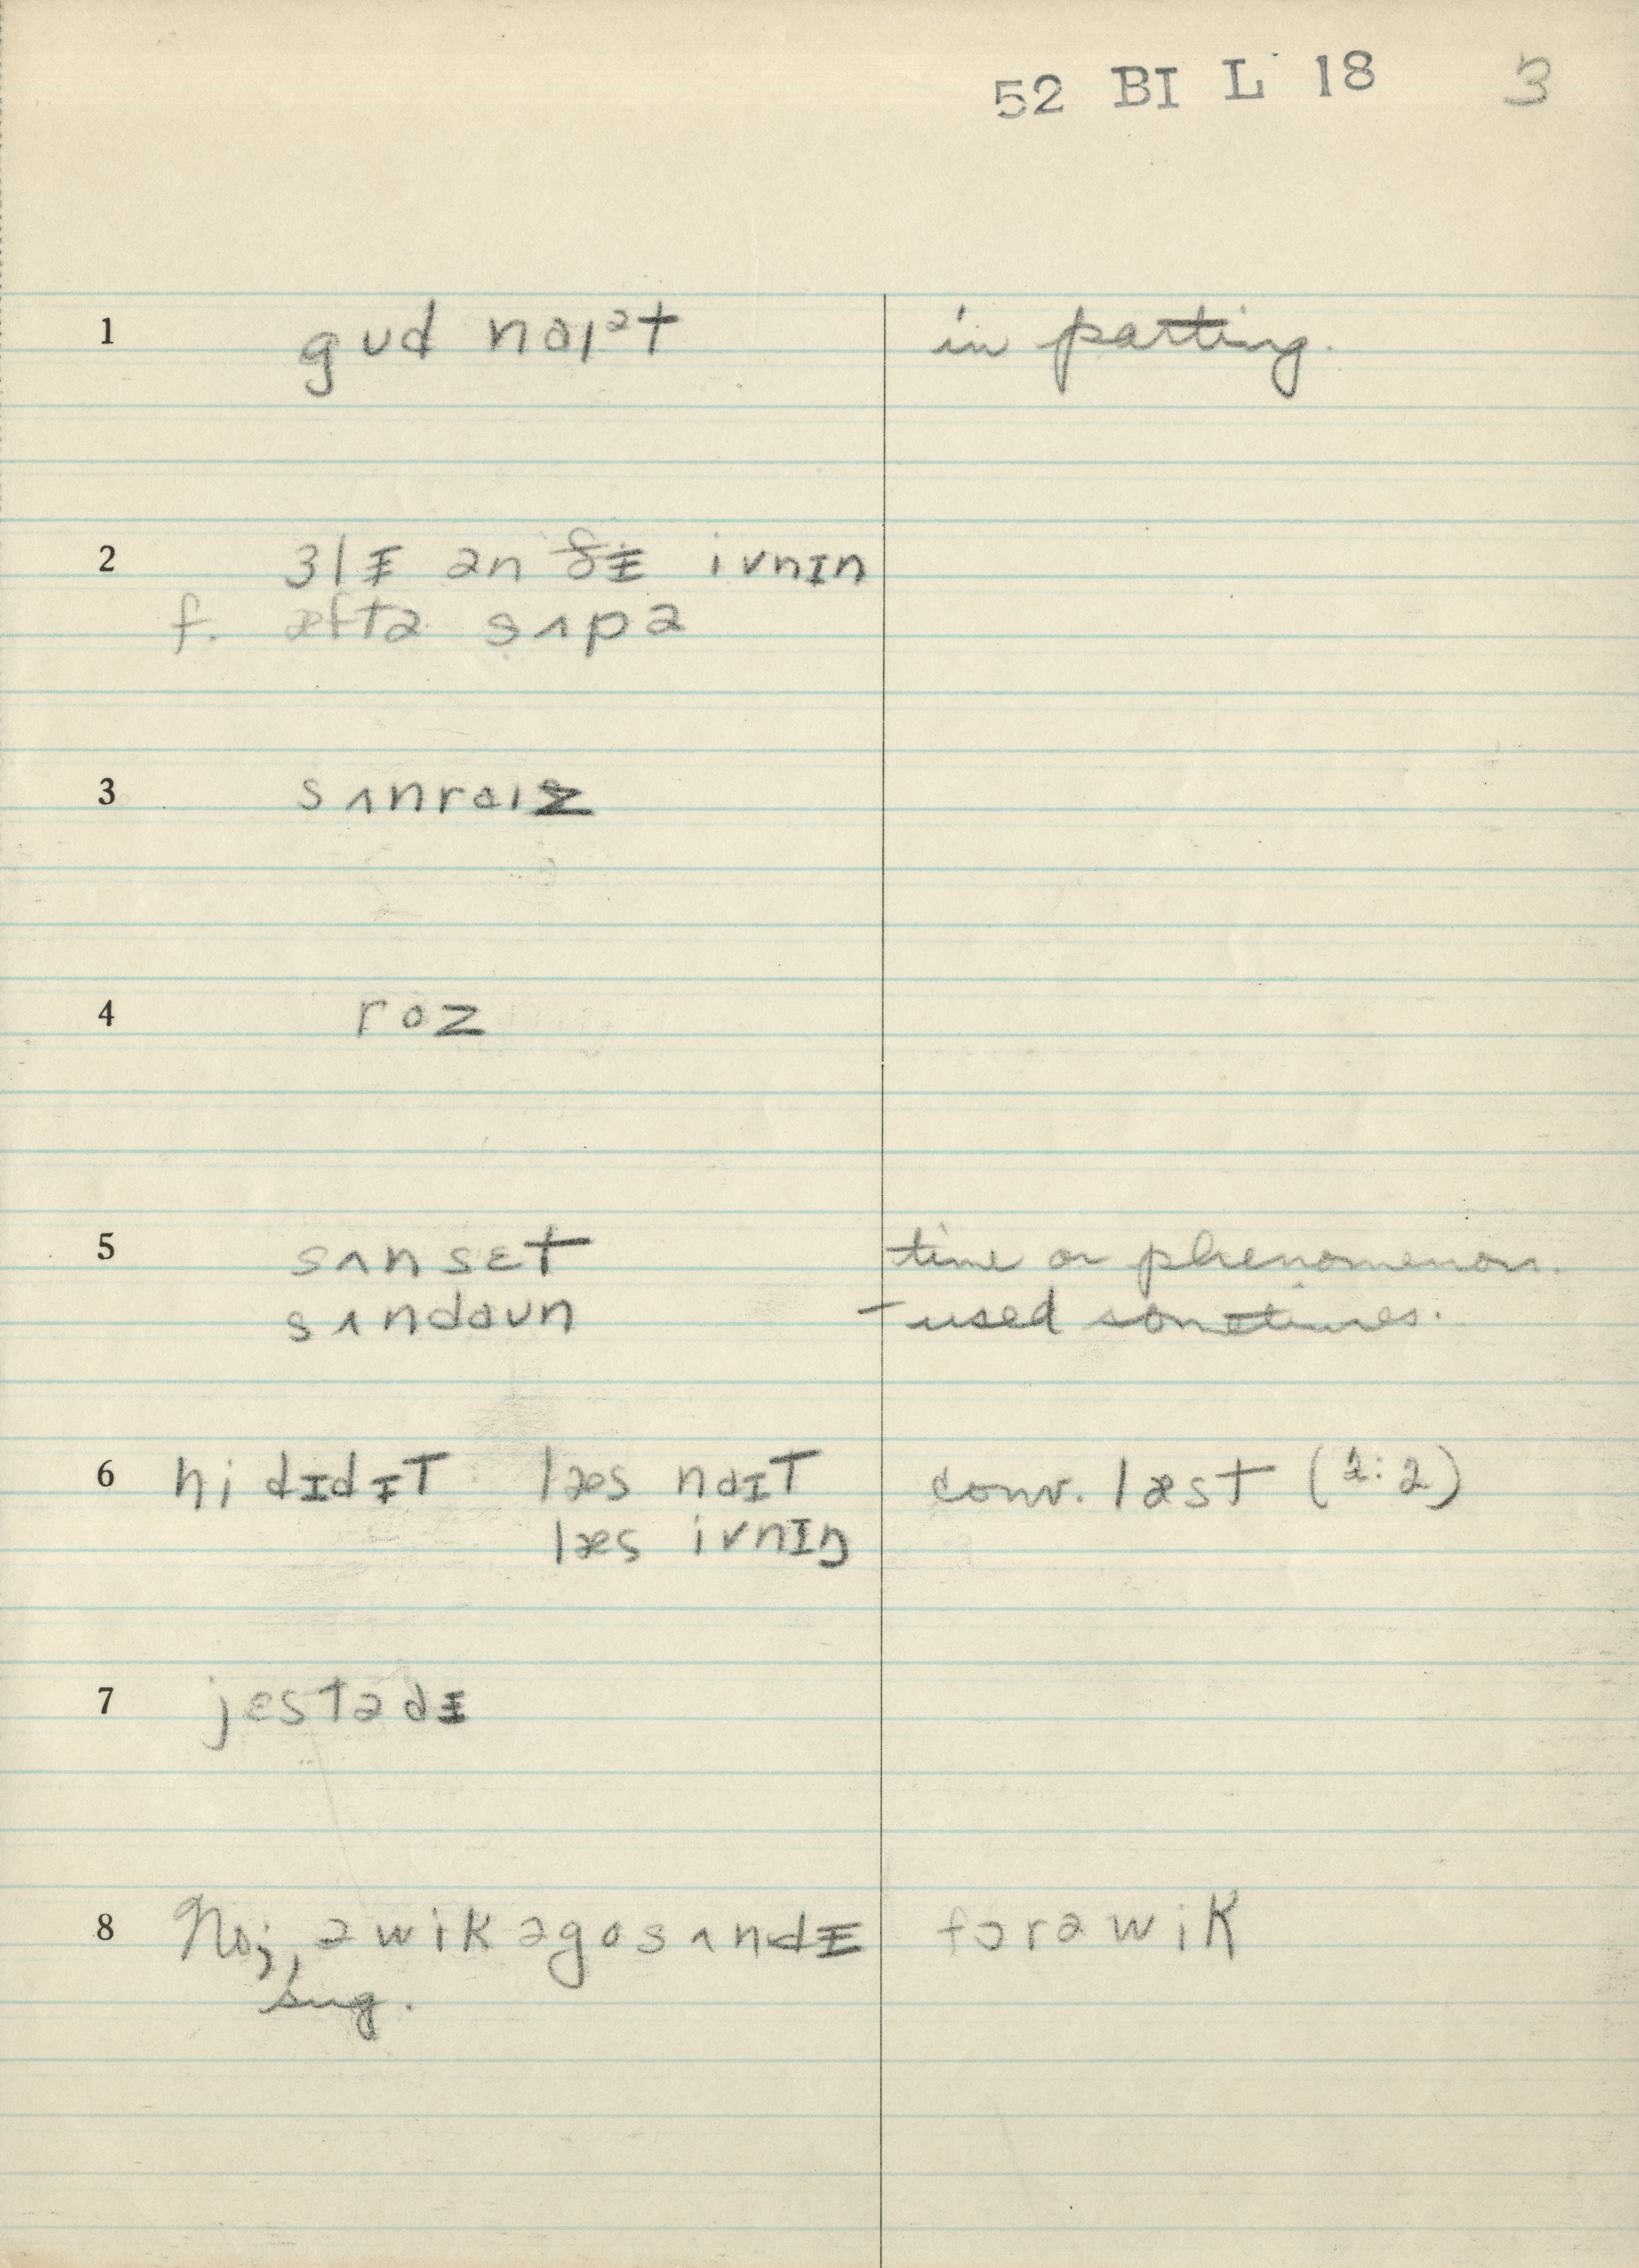 52 BI L 18 3
1 gʊd naɪᵊt in parting.
2 ɜlɪ̵ ən ðɪ̵ ivnɪn
f. æftə sʌpə
3 sʌnraɪz
4 roz
5 sʌnsɛt time or phenomenon.
sʌndaʊn – used sometimes.
6 hi dɪdɪ̵t læs naɪt conv. læst (1:2)
læs ivnɪŋ
7 jɛstədɪ̵
8 No; ə wik əgo sʌndɪ̵ fɔr ə wik
sug.